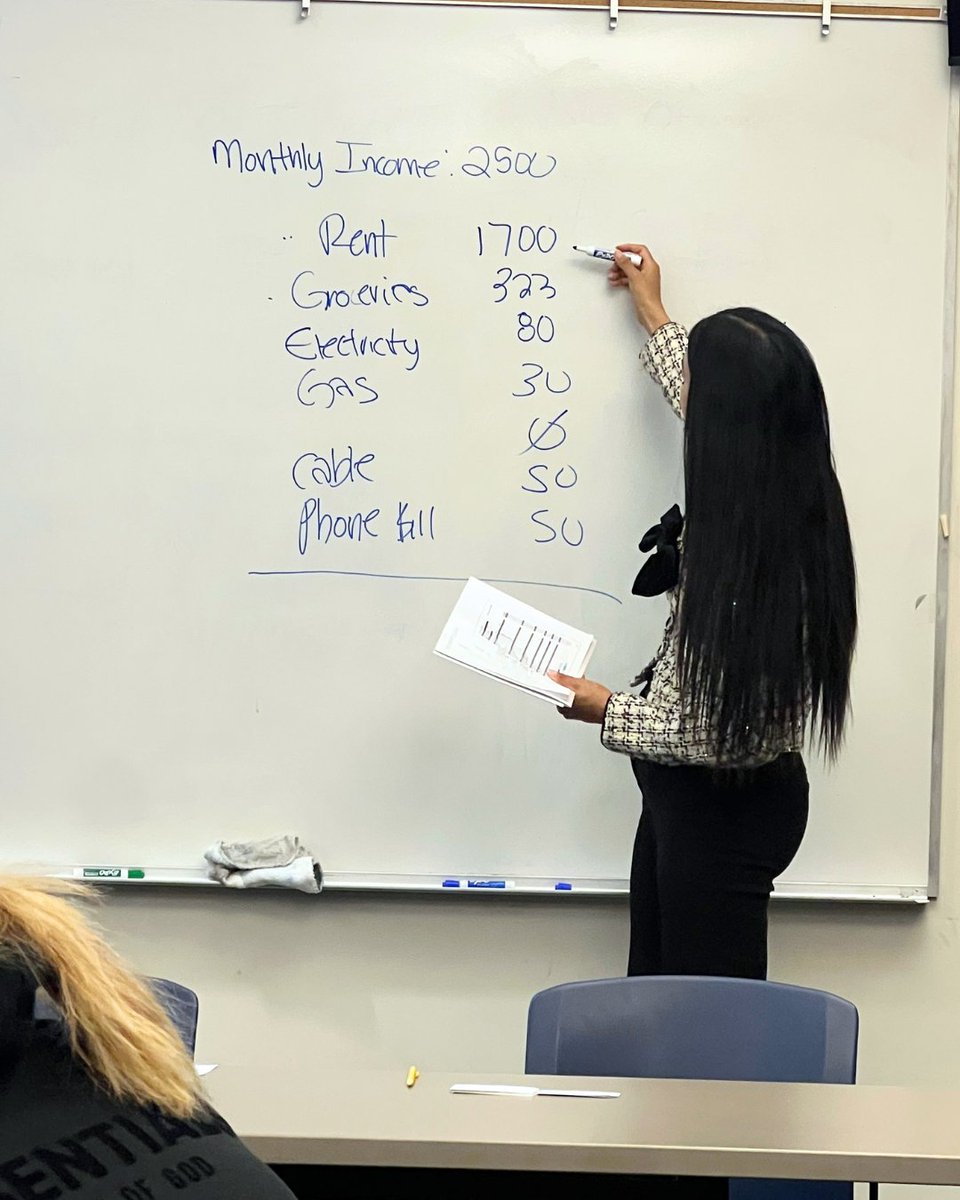 Monthly Income: 2500
Rent 1700
Groceries 323
Electricity 80
Gas 30
Ø
Cable 50
Phone Bill 50
EXPO
ENTIA
OF GOD